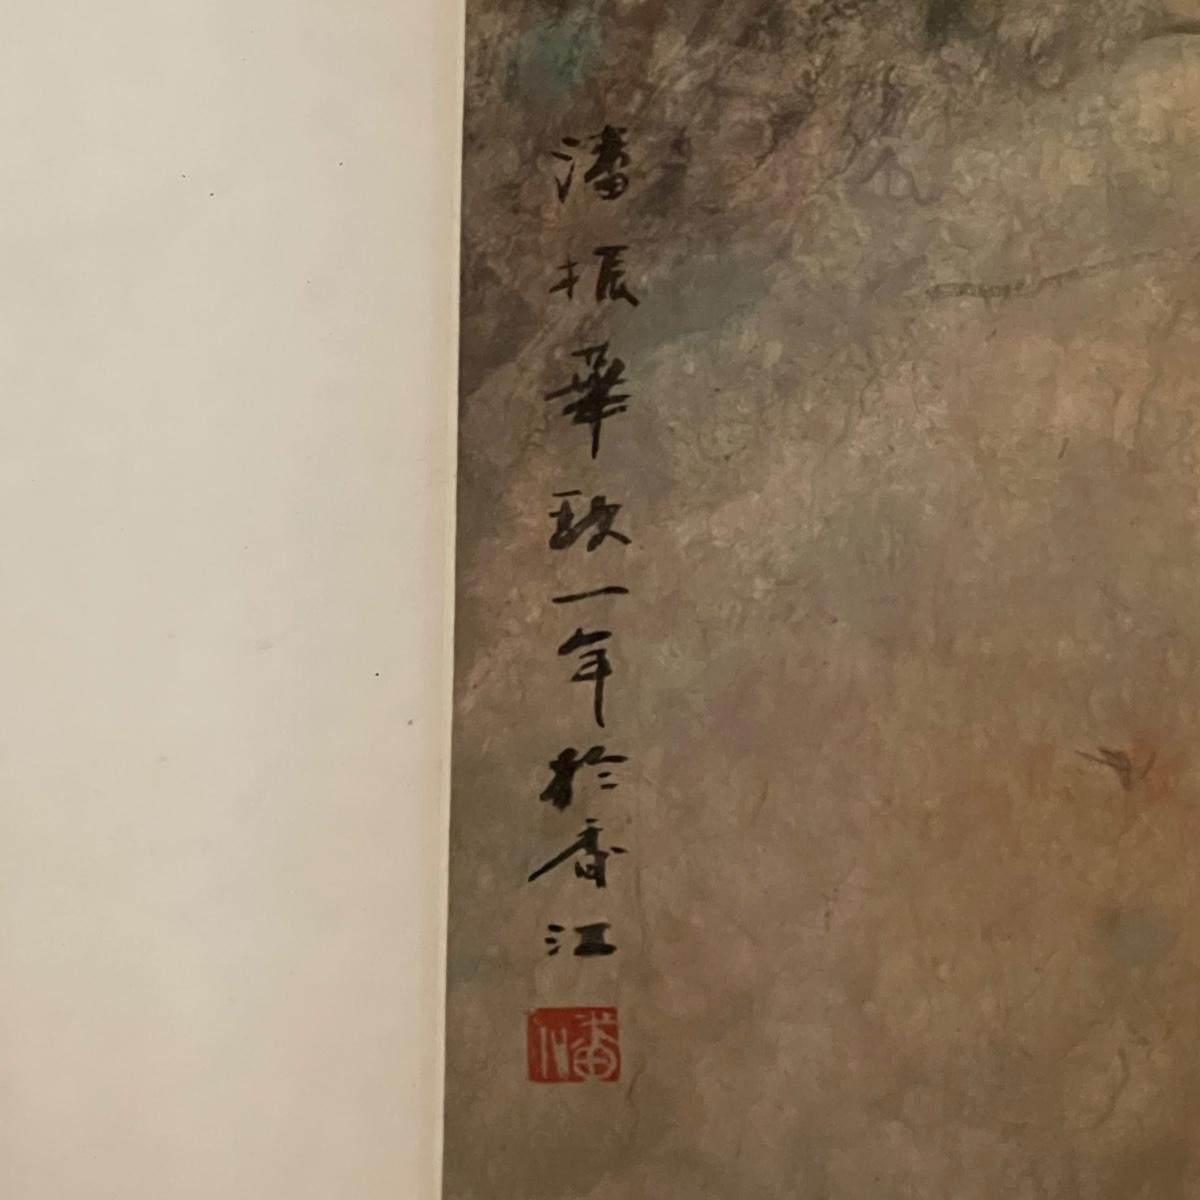 潘振華玖一年於香江
潘